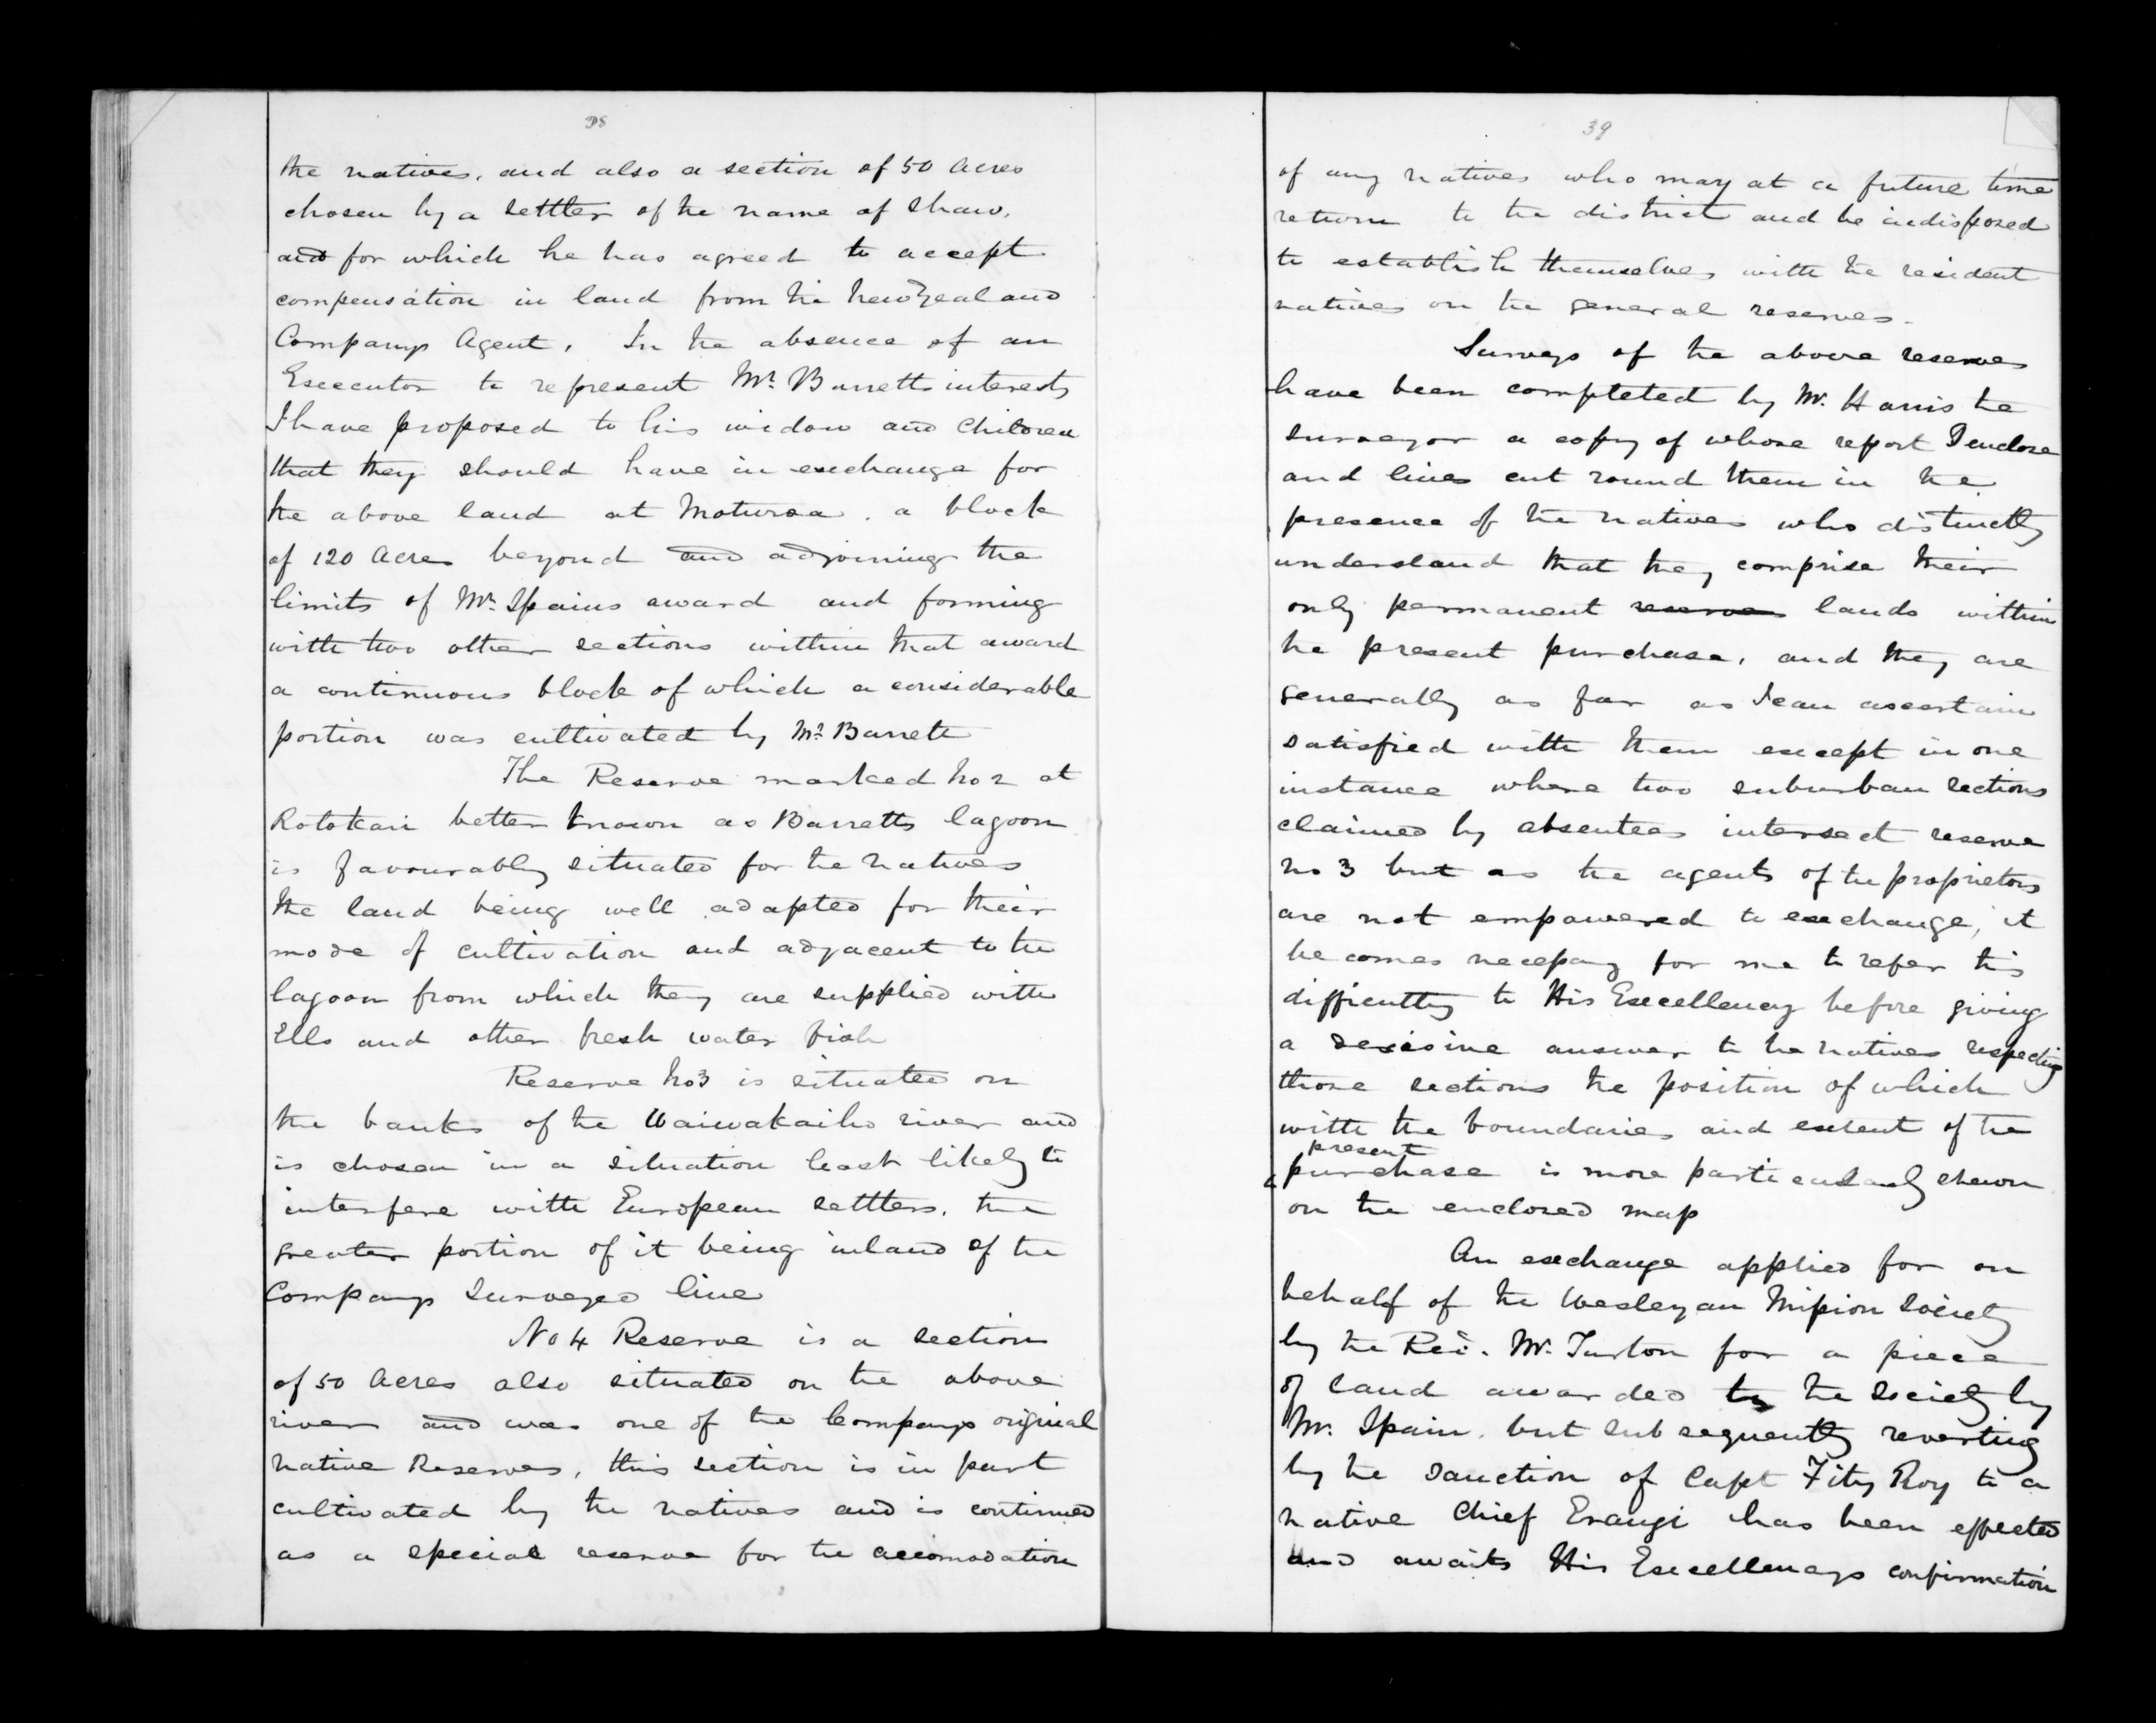 38
the natives, and also a section of 50 Acres
chosen by a settler of the name of Shaw,
and for which he has agreed to accept
compensation in land from the New Zealand
Companys Agent. In the absence of an
Executor to represent Mr. Barretts interests
I have proposed to his widow and Children
that they should have in exchange for
the above land at Moturoa, a block
of 120 Acres beyond and adjoining the
limits of Mr. Spains award and forming
with two other sections within that award
a continuous block of which a considerable
portion was cultivated by Mr. Barrett
The Reserve marked No 2 at
Rotokari better known as Barretts lagoon
is favourably situated for the natives
the land being well adapted for their
mode of cultivation and adjacent to the
lagoon from which they are supplied with
Ells and other fresh water fish
Reserve No 3 is situated on
the banks of the Waiwakaiho river and
is chosen in a situation least likely to
interfere with European settlers, the
greater portion of it being inland of the
Companys Surveyed line
No 4 Reserve is a section
of 50 Acres also situated on the above
river and was one of the Companys original
native Reserves, this section is in part
cultivated by the natives and is continued
as a special reserve for the accomodation
39
of any natives who may at a future time
return to the district and be indisposed
to establish themselves with the resident
natives on the general reserves.
Surveys of the above reserves
have been completed by Mr. Harris the
surveyor a copy of whose report I enclose
and lines cut round them in the
presence of the natives who distinctly
understand that they comprise their
only permanent reserves lands within
the present purchase, and they are
generally as far as I can ascertain
satisfied with them except in one
instance where two suburban sections
claimed by absentees intersect reserve
No 3 but as the agents of the proprietors
are not empowered to exchange, it
becomes necessary for me to refer this
difficulty to His Excellency before giving
a decisive answer to the natives respecting
those sections the position of which
with the boundaries and extent of the
present
purchase is more particularly shewn
on the enclosed map
An exchange applied for on
behalf of the Wesleyan Mission Society
by the Rev. Mr. Turton for a piece
of land awarded to the Society by
Mr. Spain, but subsequently reverting
by the sanction of Capt Fitz Roy to a
native Chief Erangi has been effected
and awaits His Excellencys confirmation